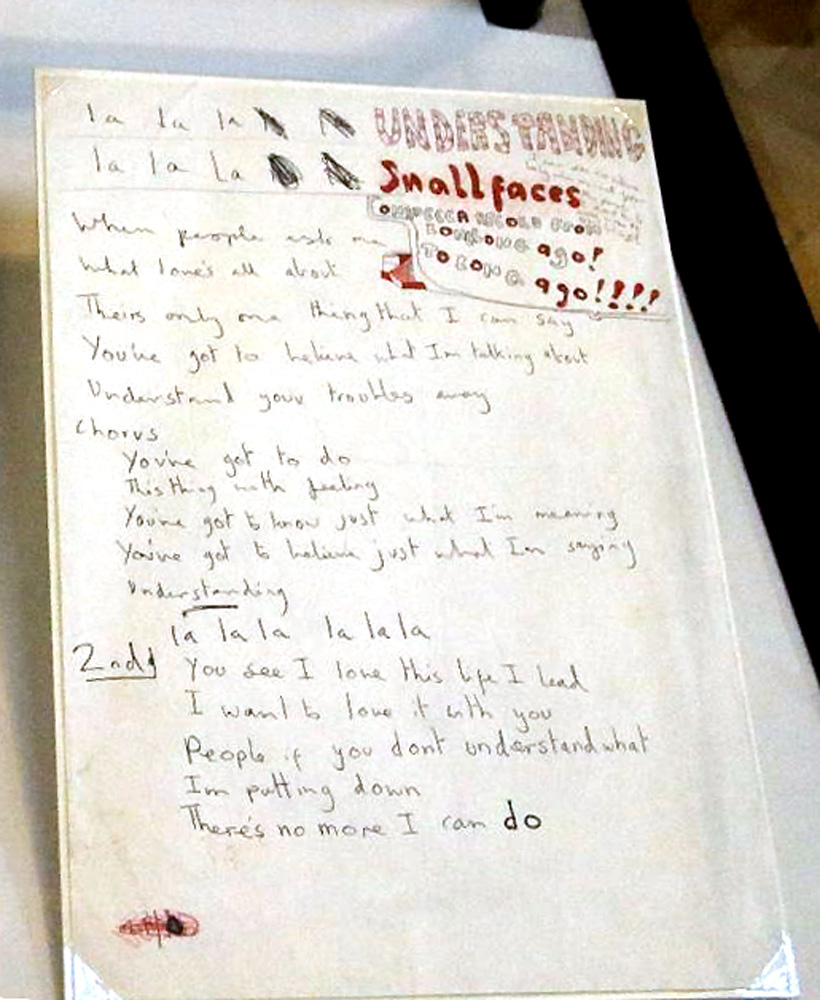 la la la
UNDERSTANDING
la la La
Smallfaces
LONG ago!
TO LONG ago!!!!
When people ask me
What love's all about
Theirs only one thing that I can say
You've got to believe what Im talking about
Understand your troubles away
Chorus
You've got to do
This thing with feeling
You've got to know just what I'm meaning
You've got to believe just what Im saying
Understanding
la la la la la la
2nd
You see I love this life I lead
I want to love it with you
People if you dont understand what
Im putting down
There's no more I can do